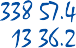 338 57.4
13 36.2